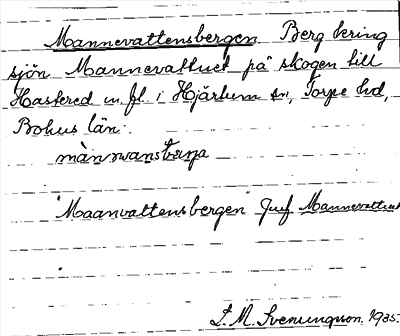 Mannevattensbergen. Berg kring
sjön Mannevattnet på skogen till
Hastered m. fl. i Hjärtum sn, Torpe hd,
Bohus län.
"Maanvattensbergen" Jmf Mannevattnet
S. M. Svenungsson. 1935.